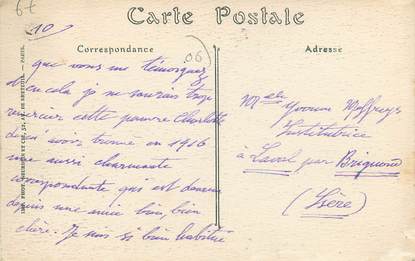 6€
10
Carte Postale
Correspondance
Adresse
06
que vous me témoignez
d'en cela je ne saurais trop
remercier cette pauvre Charlotte
de m'avoir trouvé en 1916
une aussi charmante
correspondante qui est devenue
depuis une amie bien, bien
chère. Je suis si bien habitué
Melle Yvonne
Institutrice
à Laval par Brignoud
(Isère)